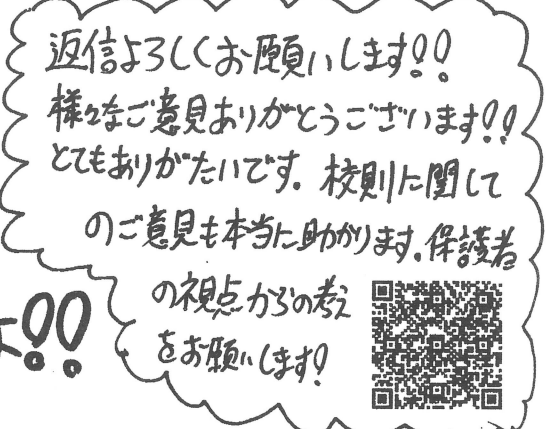 返信よろしくお願いします!!
様々なご意見ありがとうございます!!
とてもありがたいです。校則に関して
のご意見も本当に助かります。保護者
の視点からの考え
をお願いします!
!!